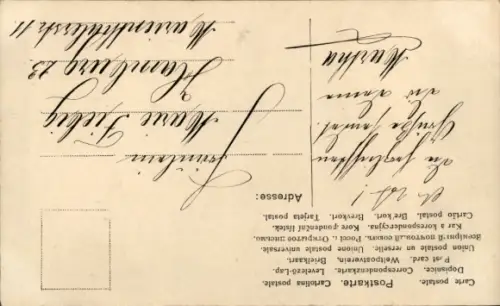 Carte postale.
Postkarte.
Cartolina postale.
Dopisnice. Correspondenzkarte. Levelező-Lap.
Post card. Weltpostverein. Briefkaart.
Union postale universelle. Unione postale universale.
Kar a korespondencyjna. Kore pondenční listek.
Cartão postal. Brevkort. Tarjeta postal.
Adresse:
Fräulein
Marie Fiebig
Hamburg 23
Marienthalerstr. 11
Die herzlichsten
Grüße sendet
Martha